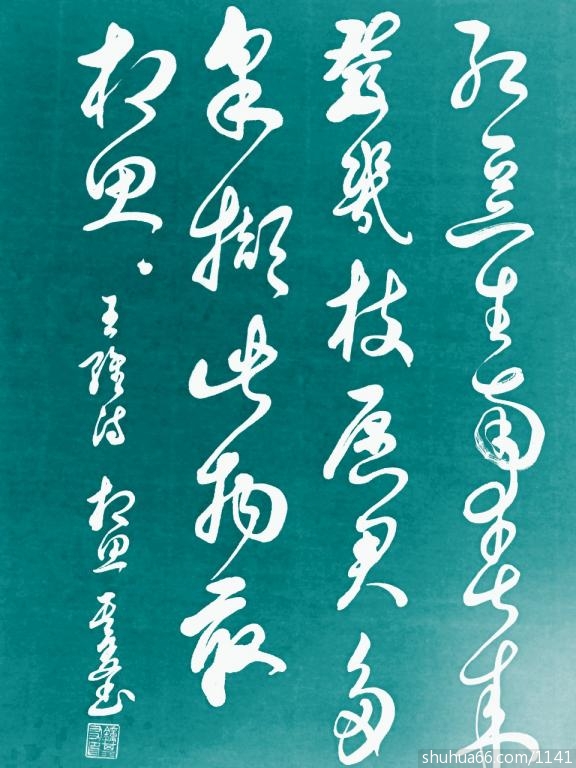 红豆生南国春来
發幾枝愿君多
采撷此物最
相思
王维诗 相思 书
shuhua66.com/1141